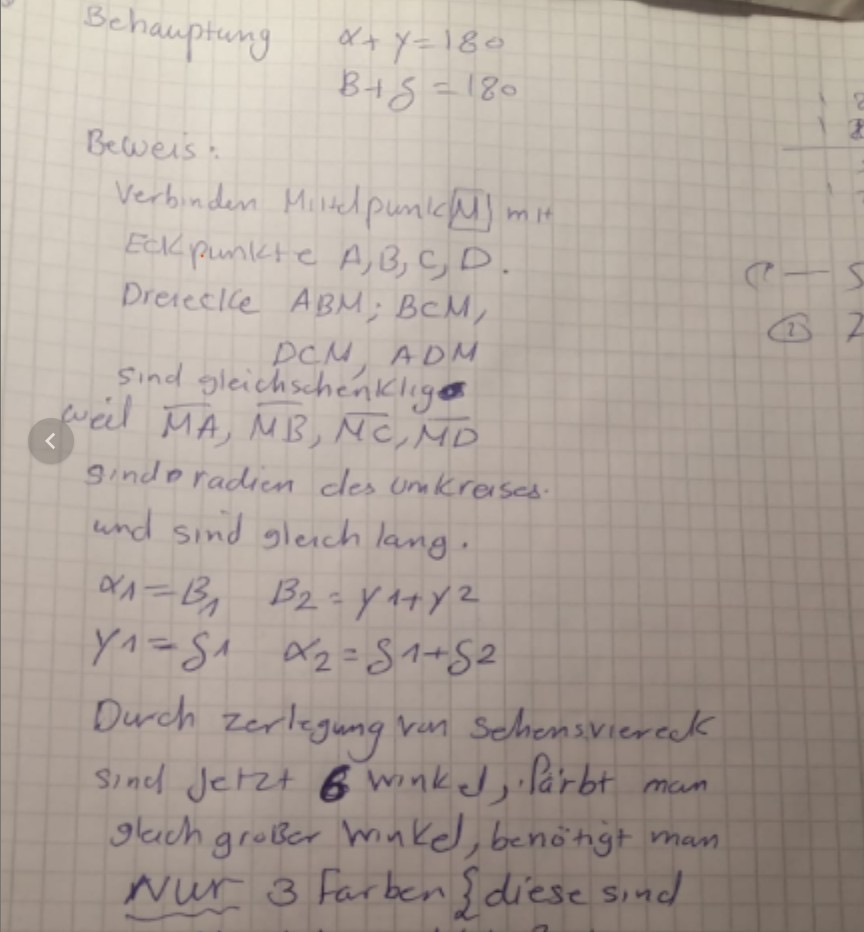 Behauptung α + γ = 180
B + δ = 180
Beweis:
Verbinden Mittelpunk M mit
Eckpunkte A, B, C, D.
Dreiecke ABM; BCM,
DCM, ADM
sind gleichschenklig
weil M̅A̅, M̅B̅, M̅C̅, M̅D̅
sind radien des umkreises.
und sind gleich lang.
α1 = B1 B2 = γ1 + γ2
γ1 = δ1 α2 = δ1 + δ2
Durch zerlegung von Sehensviereck
sind jetzt 6 winkel, färbt man
gleich großer winkel, benötigt man
Nur 3 Farben { diese sind